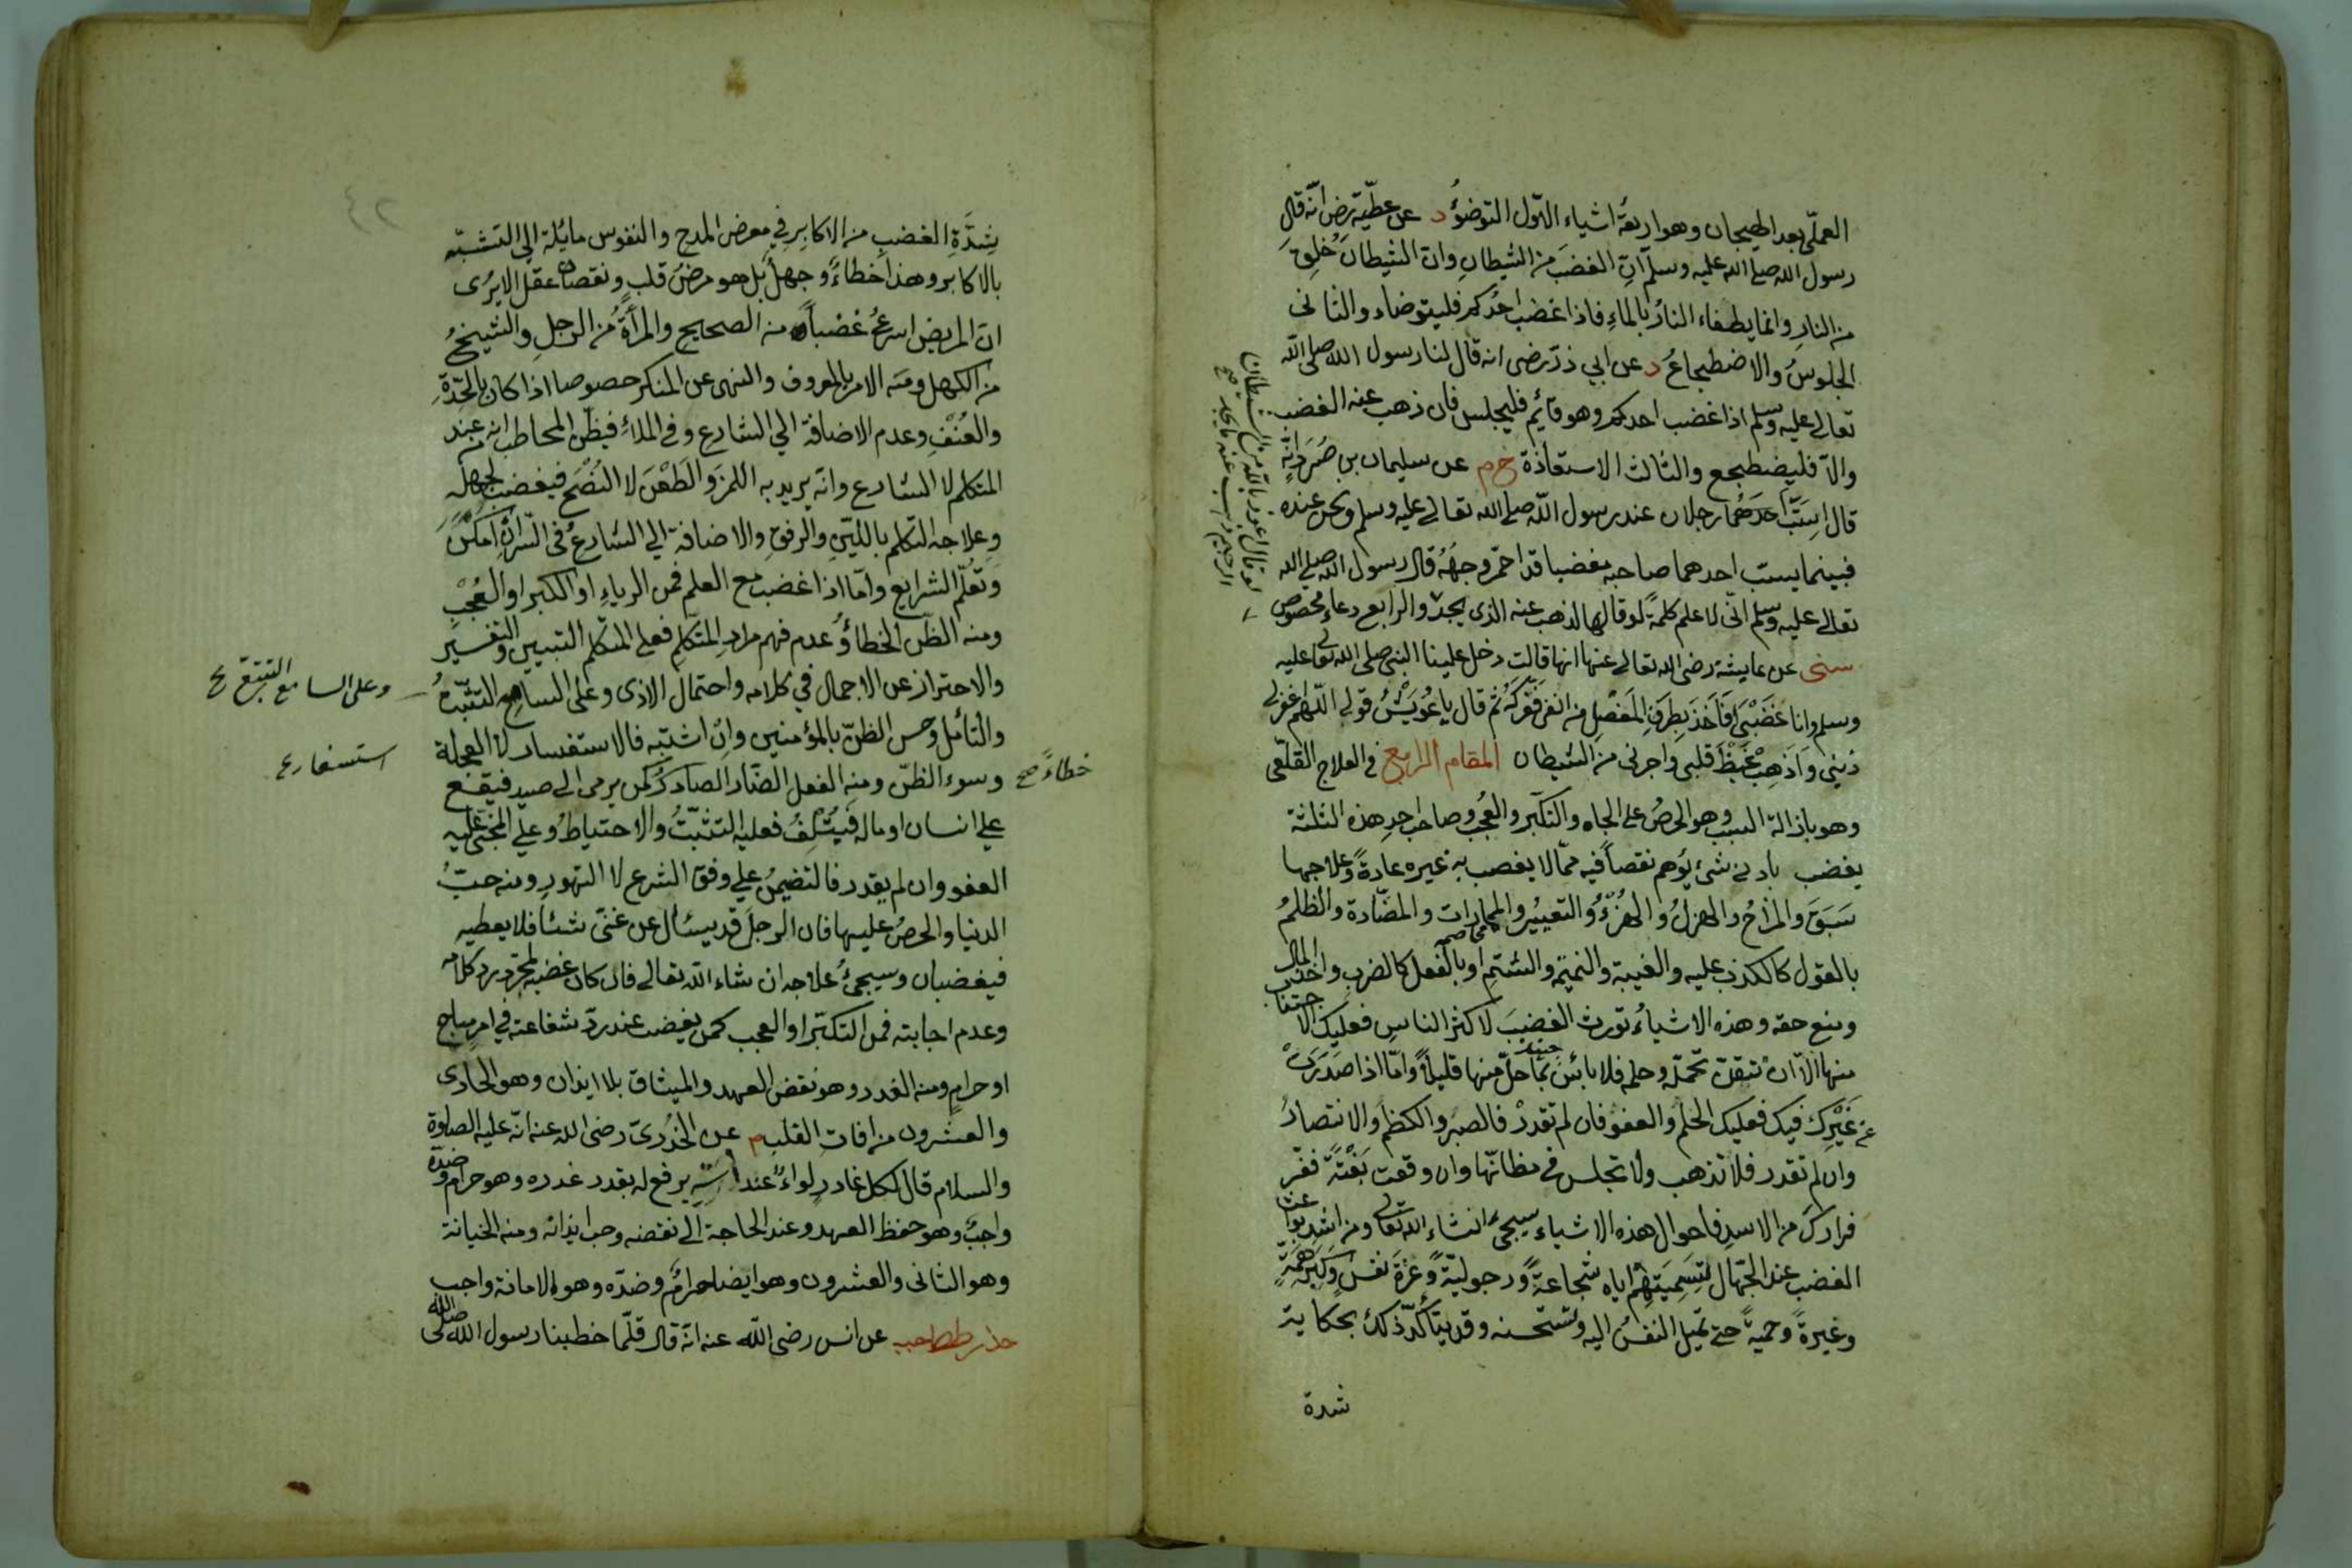 العملّى بعد الهيجان وهو اربعة اشياء الاوّل التوضؤ د عن عطيّة رض انّه قال
رسول الله صلى الله عليه وسلم انّ الغضبَ من الشيطانِ وانّ الشيطانَ خُلِقَ
من النارِ وانما يطفاء النارُ بالماءِ فاذا غضب احدُكم فليتوضاء والثانى
الجلوسُ والاضطجاعُ د عن ابي ذرّ رضى انه قال لنا رسول الله صلى الله
تعالى عليه وسلم اذا غضب احدكم وهو قائم فليجلس فان ذهب عنه الغضب
والّا فليضطجع والثالث الاستعاذة خ م عن سليمان بن صُرَد انّه
قال استبّ رجلان عند رسول الله صلى الله تعالى عليه وسلم ونحن عنده
فبينما يسبّ احدهما صاحبه مغضبا قد احمرّ وجهُهُ قال رسول الله صلى الله
تعالى عليه وسلم انّى لاعلم كلمةً لو قالها لذهب عنه الذى يجد والرابع دعاء مخصوص
لو قال اعوذ بالله من الشيطان
الرجيم ذهب عنه ما يجد صح
سنى عن عايشة رضى الله تعالى عنها انها قالت دخل علينا النبى صلى الله تعالى عليه
وسلم وانا غَضْبَى فَاَخَذَ بِطَرَفِ المَفْصِلِ من انفى فَعَرَكَهُ ثم قال يا عُوَيْشُ قولى اللّهم اغفرلى
ذنبى وَاَذْهِبْ غَيْظَ قلبى واجرنى من الشيطان المقام الرابع فى العلاج القلعى
وهو بازالة السبب وهو الحرصُ على الجاه والتكبر والعُجب وصاحب احدِ هذه الثلثة
يغضب بادنى شئ يُوهم نقصاً فيه ممّا لا يغضب به غيره عادةً وعلاجها
سَبَقَ والمزاحُ والهزلُ والهُزْءُ والتعييرُ والمماراة والمضّادة والظلمُ
بالقول كالكذب عليه والغيبة والنميمة والشتمِ او بالفعل كالضرب واخذ المال
ومنع حقه وهذه الاشياءُ تورث الغضبَ لاكثر الناس فعليك الاجتناب
منها الّا انْ تتيقن تحمّله وحلمه فلا بائس بما حلّ منها قليلاً وامّا اذا صدرت
عن غَيْرِكَ فيك فعليك الحلم والعفو فان لم تقدرْ فالصبرُ والكظمُ والانتصارُ
وان لم تقدر فلا تذهب ولا تجلس فى مظانّها وان وقعت بَغْتَةً ففّر
فرارك من الاسد فاحوال هذه الاشياء سيجئ انشاء الله تعالى ومن اشدّ بواعث
الغضب عند الجهّال تسميتهم اياه شجاعةً ورجوليّةً وعزة نفس وكبر همّةٍ
وغيرةً وحميةً حتى تميل النفسُ اليه وتستحسنه وقد يتأكّد ذلك بحكاية
شدة
٤٢
شِدَّةِ الغضبِ من الاكابِر فى معرض المدح والنفوس مايُلة الى التشبّه
بالاكابر وهذا خطاءٌ وجهلٌ بل هو مرضُ قلبٍ ونقصانُ عقلٍ الا يُرى
انّ المريض اسرعُ غضباً من الصحيح والمرأةُ من الرجلِ والشيخُ
من الكهل ومنه الامر بالمعروف والنهى عن المنكر خصوصا اذا كان بالحِدّةِ
والعُنْفِ وعدم الاضافة الى الشارع وفى الملاءِ فيظنّ المخاطب انه من عند
المتكلم لا الشارع وانّه يريد به اللمزَ والطَعْنَ لا النُصْحَ فيغضب لجهله
وعلاجه التكلم باللينِ والرفقِ والاضافة الى الشارع فى السّرّ ان امكنَ
وتعلّم الشرايع وامّا اذا غضب مع العلم فمن الرياءِ او الكبر او العُجْبِ
ومنه الظنّ الخطأُ وعدم فهم مرادِ المتكلِم فعلى المتكلم التبيين والتفسير
والاحتراز عن الاجمال فى كلامه واحتمال الاذى وعلى السامع التثبّتُ
وعلى السامع
والتأمل وحسن الظنّ بالمؤمنين وانْ اشتبه فالاستفسار لا العجلة
استسفار ع
وسوء الظنّ ومنه الفعل الضّار الصادر كمن يرمى الى صيد فيقع
خطاءً صح
على انسان او ماله فيُتْلِفُ فعليه التثبّتُ والاحتياطُ وعلى المجنى عليه
العفو وان لم يقدر فالتضمينُ على وفق الشرع لا التهورِ ومنه حبُّ
الدنيا والحرصُ عليها فان الرجلَ قد يسئال عن غنىّ شئاً فلا يعطيه
فيغضبان وسيجئُ علاجه ان شاء الله تعالى فان كان غضبه لمجرّد ردّ كلامه
وعدم اجابته فمن التكبّر او العجب كمن يغضب عند ردّ شفاعته فى امرٍ مباح
او حرامٍ ومنه الغدر وهو نقض العهد والميثاق بلا ايذان وهو الحادى
والعشرون من افات القلب م عن الخدرىّ رضى الله عنه انّه عليه الصلوة
والسلام قال لكل غادرٍ لواءٌ عند اسْتِهِ يرفع له بقدر غدره وهو حرام وضدّه
واجبٌ وهو حفظ العهد وعند الحاجة الى نقضه وجب ايذانه ومنه الخيانة
وهو الثانى والعشرون وهو ايضا حرامٌ وضدّه وهو الامانة واجب
حد ز طط حب عن انس رضى الله عنه انّه قال قلّما خطبنا رسول الله صلى الله